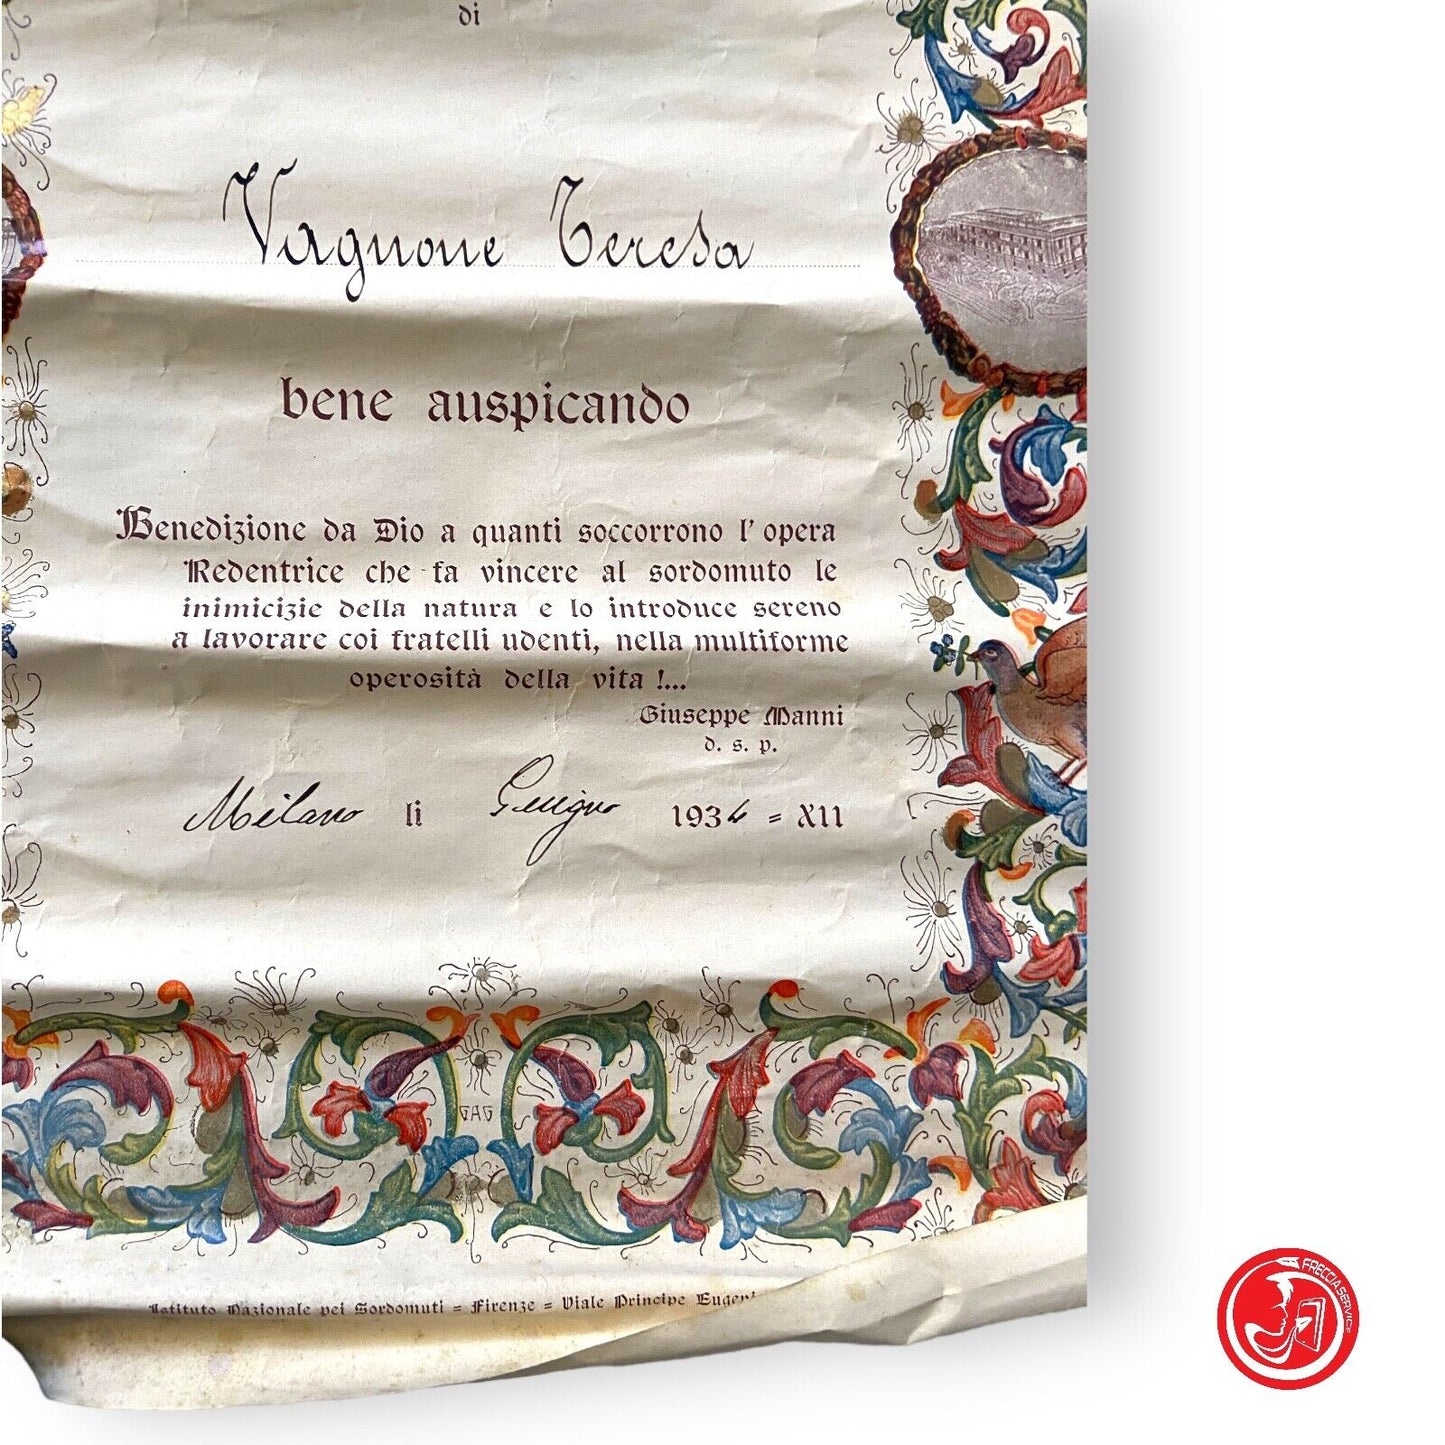 di
Vagnone Teresa
bene auspicando
Benedizione da Dio a quanti soccorrono l'opera
Redentrice che fa vincere al sordomuto le
inimicizie della natura e lo introduce sereno
a lavorare coi fratelli udenti, nella multiforme
operosità della vita !...
Giuseppe Manni
d. s. p.
Milano li Giugno 1934 = XII
GAG
Istituto Nazionale pei Sordomuti = Firenze = Viale Principe Eugeni
FRECCIASERVICE